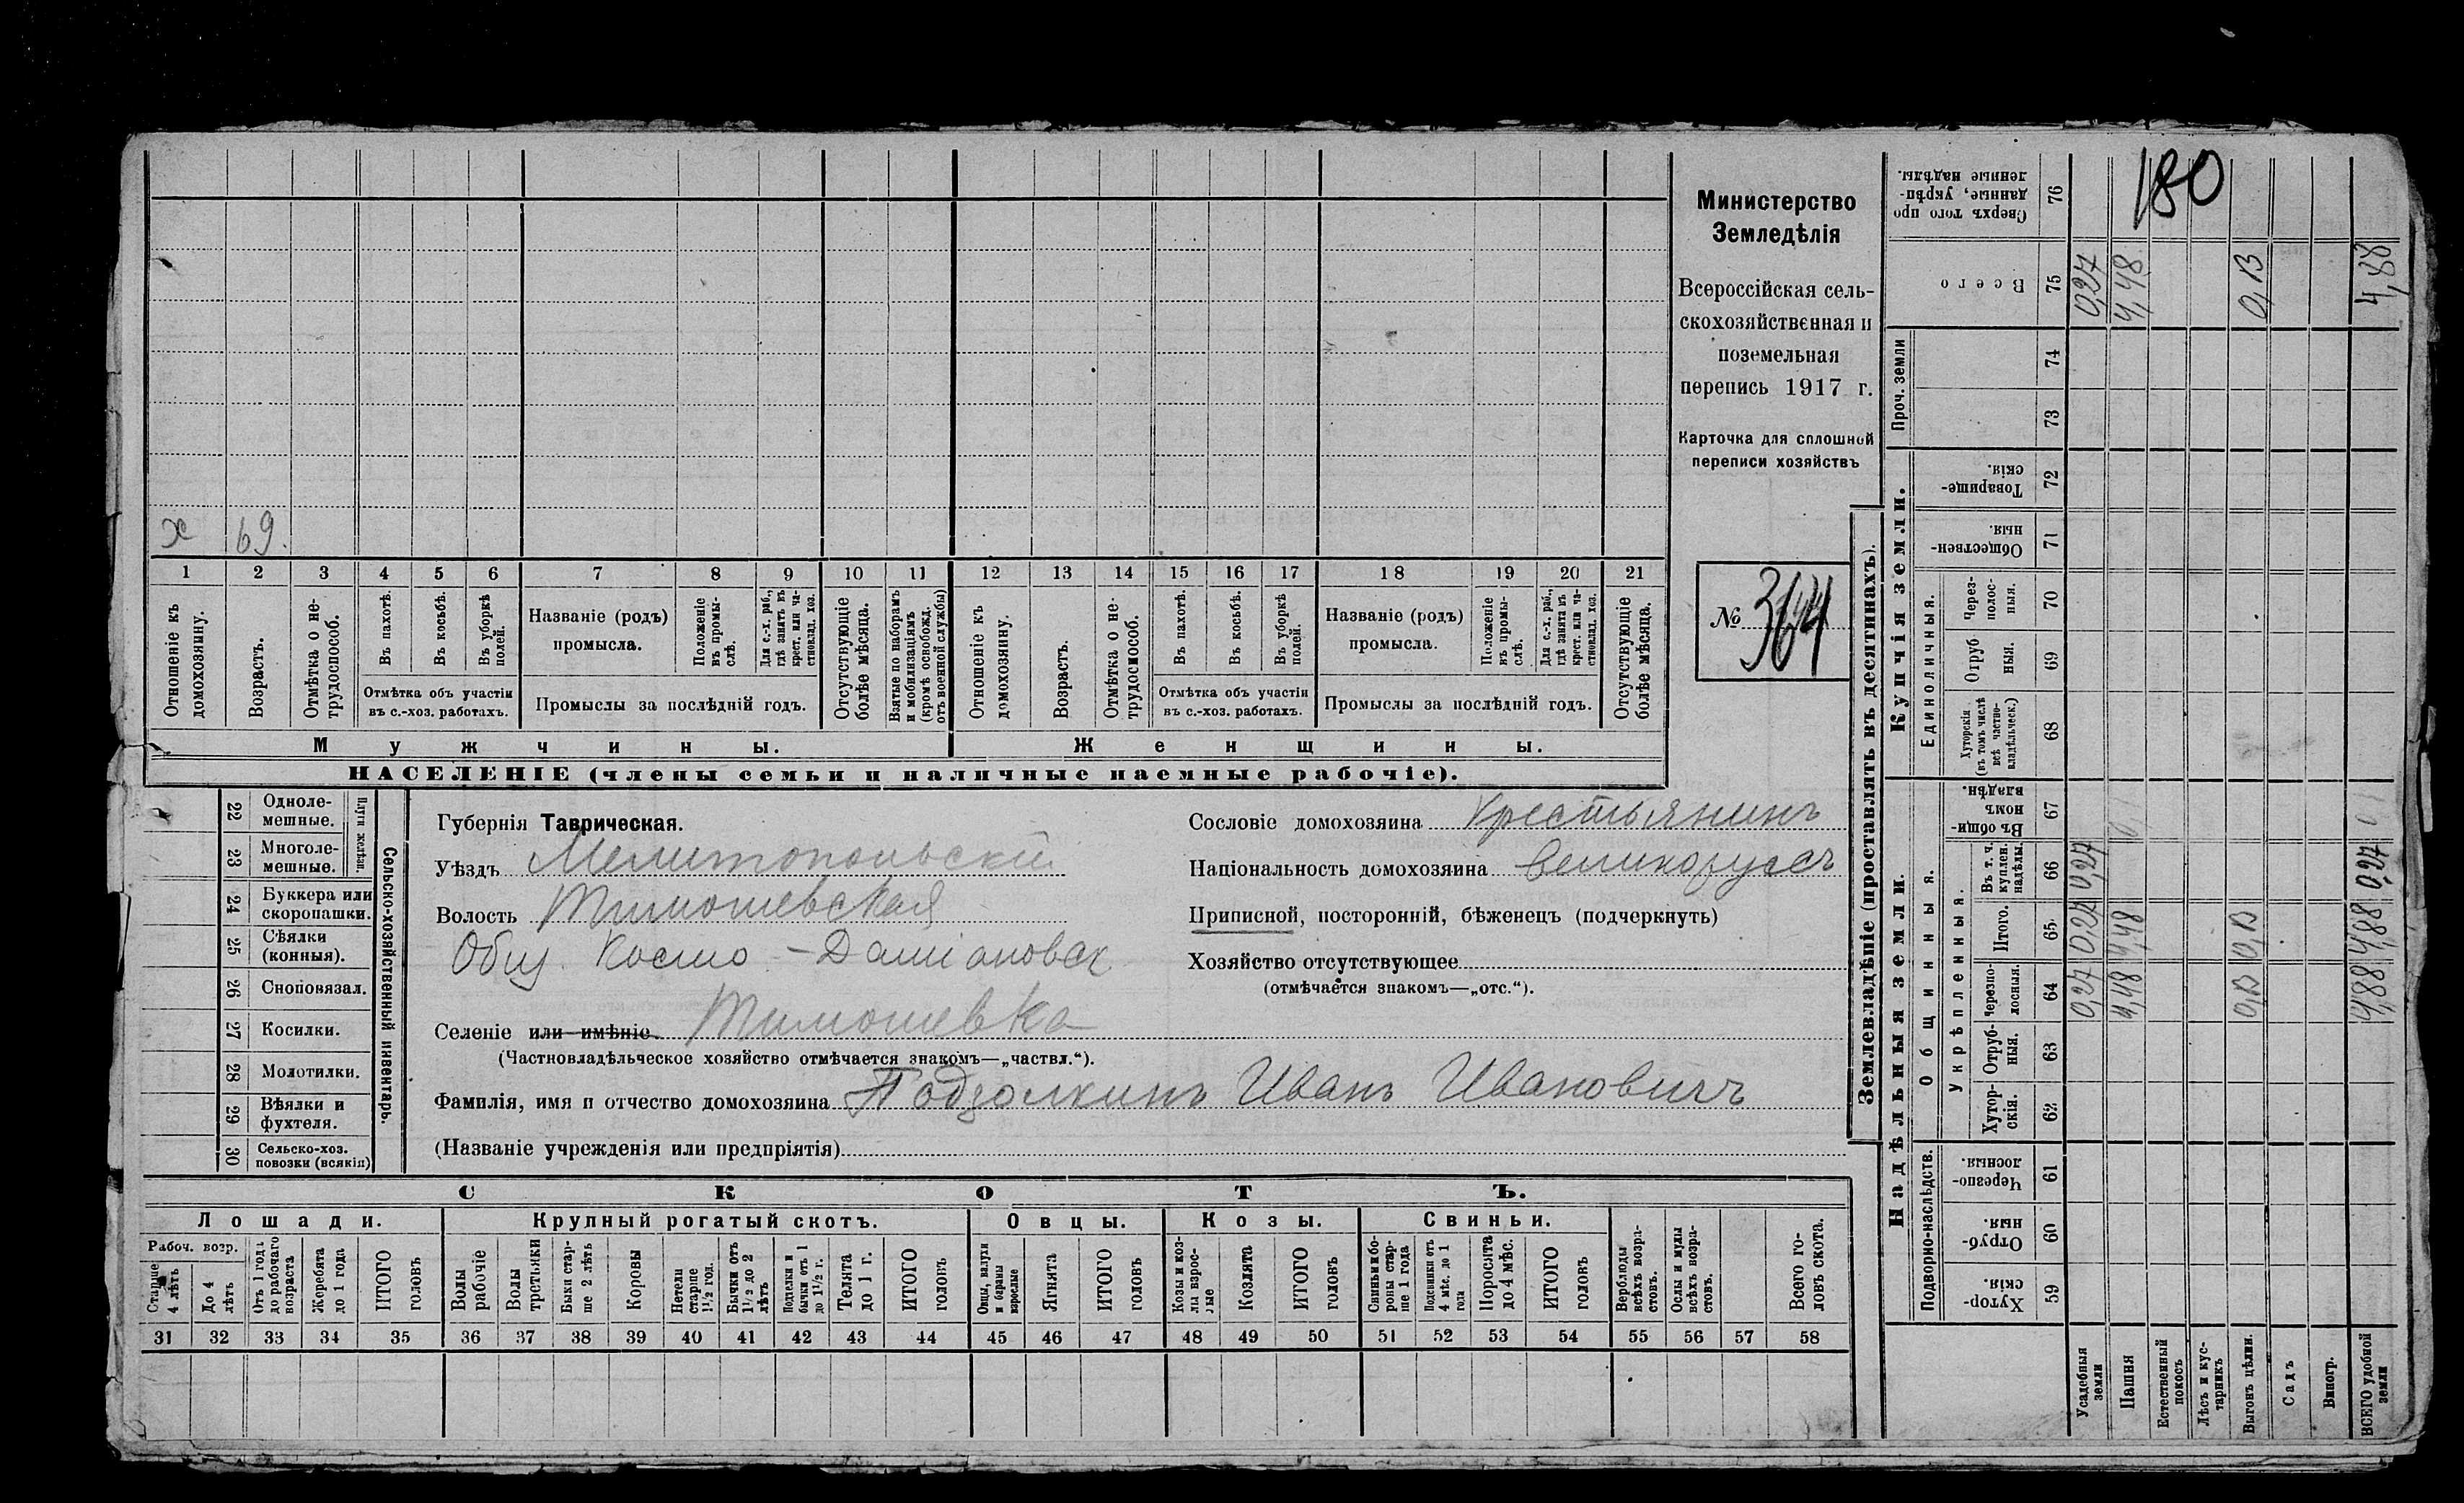 х 69.
1 2 3 4 5 6 7 8 9 10 11 12 13 14 15 16 17 18 19 20 21
Отношеніе къ домохозяину.
Возрастъ.
Отмѣтка о не-
трудоспособ.
Въ пахотѣ.
Въ косьбѣ.
Въ уборкѣ полей.
Отмѣтка объ участіи
въ с.-хоз. работахъ.
Названіе (родъ)
промысла.
Положеніе
въ промы-
слѣ.
Для с.-х. раб.,
гдѣ занятъ въ
крест. или ча-
стновлад. хоз.
Промыслы за послѣдній годъ.
Отсутствующіе
болѣе мѣсяца.
Взятые по наборамъ
и мобилизаціямъ
(кромѣ освобожд.
отъ военной службы)
Отношеніе къ
домохозяину.
Возрастъ.
Отмѣтка о не-
трудоспособ.
Въ пахотѣ.
Въ косьбѣ.
Въ уборкѣ
полей.
Отмѣтка объ участіи
въ с.-хоз. работахъ.
Названіе (родъ)
промысла.
Положеніе
въ промы-
слѣ.
Для с.-х. раб.,
гдѣ занята въ
крест. или ча-
стновлад. хоз.
Промыслы за послѣдній годъ.
Отсутствующіе
болѣе мѣсяца.
Мужчины.
Женщины.
НАСЕЛЕНІЕ (члены семьи и наличные наемные рабочіе).
Министерство
Земледѣлія
Всероссійская сель-
скохозяйственная и
поземельная
перепись 1917 г.
Карточка для сплошной
переписи хозяйствъ
№ 364
22 Одноле-
мешные.
23 Многоле-
мешные.
Плуги желѣзн.
24 Буккера или
скоропашки.
25 Сѣялки
(конныя).
26 Сноповязал.
27 Косилки.
28 Молотилки.
29 Вѣялки и
фухтеля.
30 Сельско-хоз.
повозки (всякія)
Сельско-хозяйственный инвентарь.
Губернія Таврическая.
Уѣздъ Мелитопольскій
Волость Тимошевская
Общ. Космо-Даміановск
Селеніе или имѣніе Тимошевка
(Частновладѣльческое хозяйство отмѣчается знакомъ—„частвл.“).
Фамилія, имя и отчество домохозяина Подзолкинъ Иванъ Ивановичъ
(Названіе учрежденія или предпріятія)
Сословіе домохозяина Крестьянинъ
Національность домохозяина великоруссъ
Приписной, посторонній, бѣженецъ (подчеркнуть)
Хозяйство отсутствующее
(отмѣчается знакомъ—„отс.“).
СКОТЪ.
Лошади.
Крупный рогатый скотъ.
Овцы.
Козы.
Свиньи.
Рабоч. возр.
Старше
4 лѣтъ
До 4
лѣтъ
Отъ 1 года
до рабочаго
возраста
Жеребята
до 1 года
ИТОГО
головъ
Волы
рабочіе
Волы
третьяки
Быки стар-
ше 2 лѣтъ
Коровы
Нетели
старше
1½ год.
Бычки отъ
1½ до 2
лѣтъ
Подтелки и
бычки отъ 1
до 1½ г.
Телята
до 1 г.
ИТОГО
головъ
Овцы, валухи
и бараны
взрослые
Ягнята
ИТОГО
головъ
Козы и коз-
лы взрос-
лые
Козлята
ИТОГО
головъ
Свиньи и бо-
ровы стар-
ше 1 года
Подсвинки отъ
4 мѣс. до 1
года
Поросята
до 4 мѣс.
ИТОГО
головъ
Верблюды
всѣхъ возра-
стовъ.
Ослы и мулы
всѣхъ возра-
стовъ.
Всего го-
ловъ скота.
31 32 33 34 35 36 37 38 39 40 41 42 43 44 45 46 47 48 49 50 51 52 53 54 55 56 57 58
Землевладѣніе (проставлять въ десятинахъ).
180
Сверхъ того про
данные, укрѣп-
ленные надѣлы.
76
Всего
75 0,27 4,48 0,13 4,88
Проч. земли
74
73
Купчія земли.
Товарище-
скія.
72
Обществен-
ныя.
71
Единоличныя.
Через-
полос-
ныя.
70
Отруб
ныя.
69
Хуторскія
(въ томъ числѣ
всѣ частно-
владѣльческ.)
68
Надѣльныя земли.
Общинныя.
Въ общи-
номъ
владѣн.
67
Укрѣпленныя.
Въ т. ч.
куплен.
надѣлы.
66 0,27 0,27
Итого.
65 0,27 4,48 0,13 4,88
Черезпо-
лосныя.
64 0,27 4,48 0,13 4,88
Отруб-
ныя.
63
Хутор-
скія.
62
Подворно-наслѣдств.
Черезпо-
лосныя.
61
Отруб-
ныя.
60
Хутор-
скія.
59
Усадебныя
земли
Пашня
Естественный
покосъ
Лѣсъ и кус-
тарникъ
Выгонъ цѣлин.
Садъ
Виногр.
ВСЕГО удобной
земли